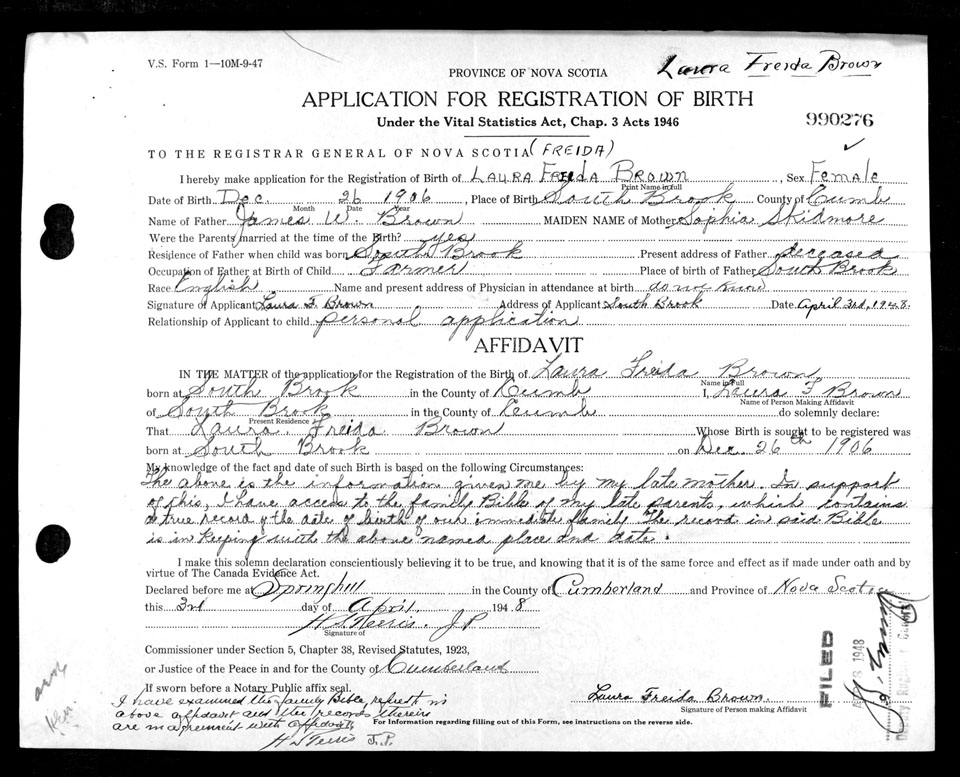 V.S. Form 1—10M-9-47
Laura Freida Brown
PROVINCE OF NOVA SCOTIA
APPLICATION FOR REGISTRATION OF BIRTH
990276
Under the Vital Statistics Act, Chap. 3 Acts 1946
TO THE REGISTRAR GENERAL OF NOVA SCOTIA (FREIDA)
I hereby make application for the Registration of Birth of LAURA FREIDA BROWN, Sex Female
Print Name in full
Date of Birth Dec. 26 1906, Place of Birth South Brook County of Cumb
Month Date Year
Name of Father James W. Brown MAIDEN NAME of Mother Sophia Skidmore
Were the Parents married at the time of the Birth? yes
Residence of Father when child was born South Brook Present address of Father deceased
Occupation of Father at Birth of Child Farmer Place of birth of Father South Brook
Race English Name and present address of Physician in attendance at birth do not know
Signature of Applicant Laura F. Brown Address of Applicant South Brook Date April 3rd, 1948.
Relationship of Applicant to child personal application
AFFIDAVIT
IN THE MATTER of the application for Registration of the Birth of Laura Freida Brown
Name in Full
born at South Brook in the County of Cumb I, Laura F Brown
Name of Person Making Affidavit
of South Brook in the County of Cumb do solemnly declare:
Present Residence
That Laura Freida Brown Whose Birth is sought to be registered was
born at South Brook on Dec. 26th 1906
My knowledge of the fact and date of such Birth is based on the following Circumstances:
The above is the information given me by my late mother. In support
of this, I have access to the family Bible of my late parents, which contains
a true record of the date of birth of our immediate family. The record in said Bible
is in keeping with the above named place and date.
I make this solemn declaration conscientiously believing it to be true, and knowing that it is of the same force and effect as if made under oath and by
virtue of The Canada Evidence Act.
Declared before me at Springhill in the County of Cumberland and Province of Nova Scotia
this 3rd day of April 1948
J.P.
Signature of
Commissioner under Section 5, Chapter 38, Revised Statutes, 1923,
or Justice of the Peace in and for the County of Cumberland
If sworn before a Notary Public affix seal.
FILED
1948
Laura Freida Brown.
Signature of Person making Affidavit
I have examined the family Bible, refered to in
above affidavit and the records therein
are in agreement with affidavit
For Information regarding filling out of this Form, see instructions on the reverse side.
J.P.